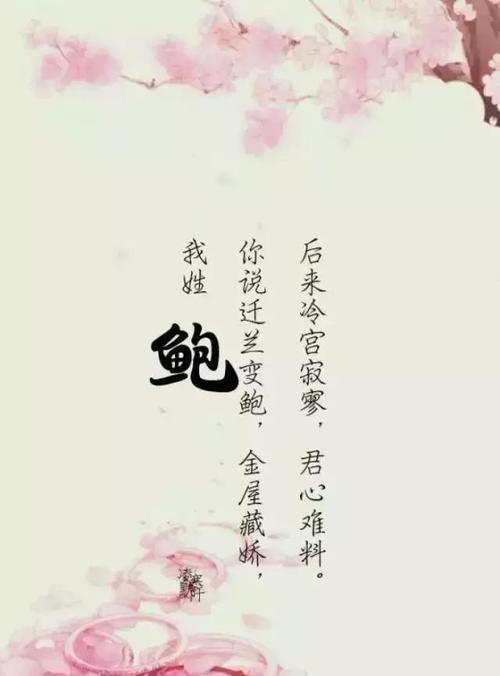 我姓
鲍
你说迁兰变鲍，金屋藏娇，
后来冷宫寂寥，君心难料。